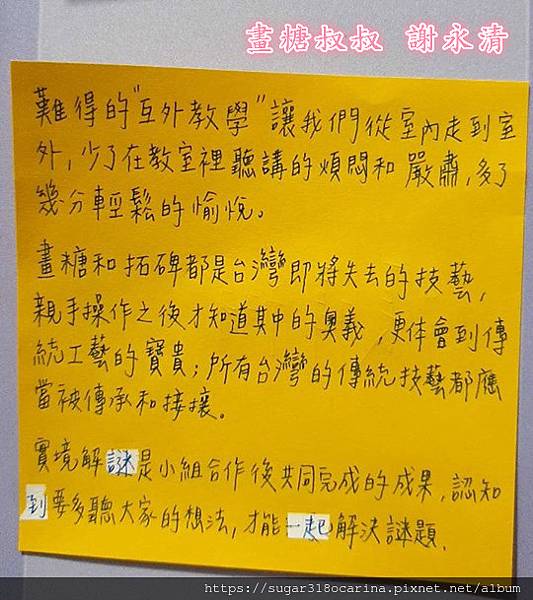 畫糖叔叔 謝永清
難得的"互外教學"讓我們從室內走到室
外，少了在教室裡聽講的煩悶和嚴肅，多了
幾分輕鬆的愉悅。
畫糖和拓碑都是台灣即將失去的技藝，
親手操作之後才知道其中的奧義，更体會到傳
統工藝的寶貴；所有台灣的傳統技藝都應
當被傳承和接攘。
實境解謎是小組合作後共同完成的成果，認知
到要多聽大家的想法，才能一起解決謎題．
https://sugar318ocarina.pixnet.net/album